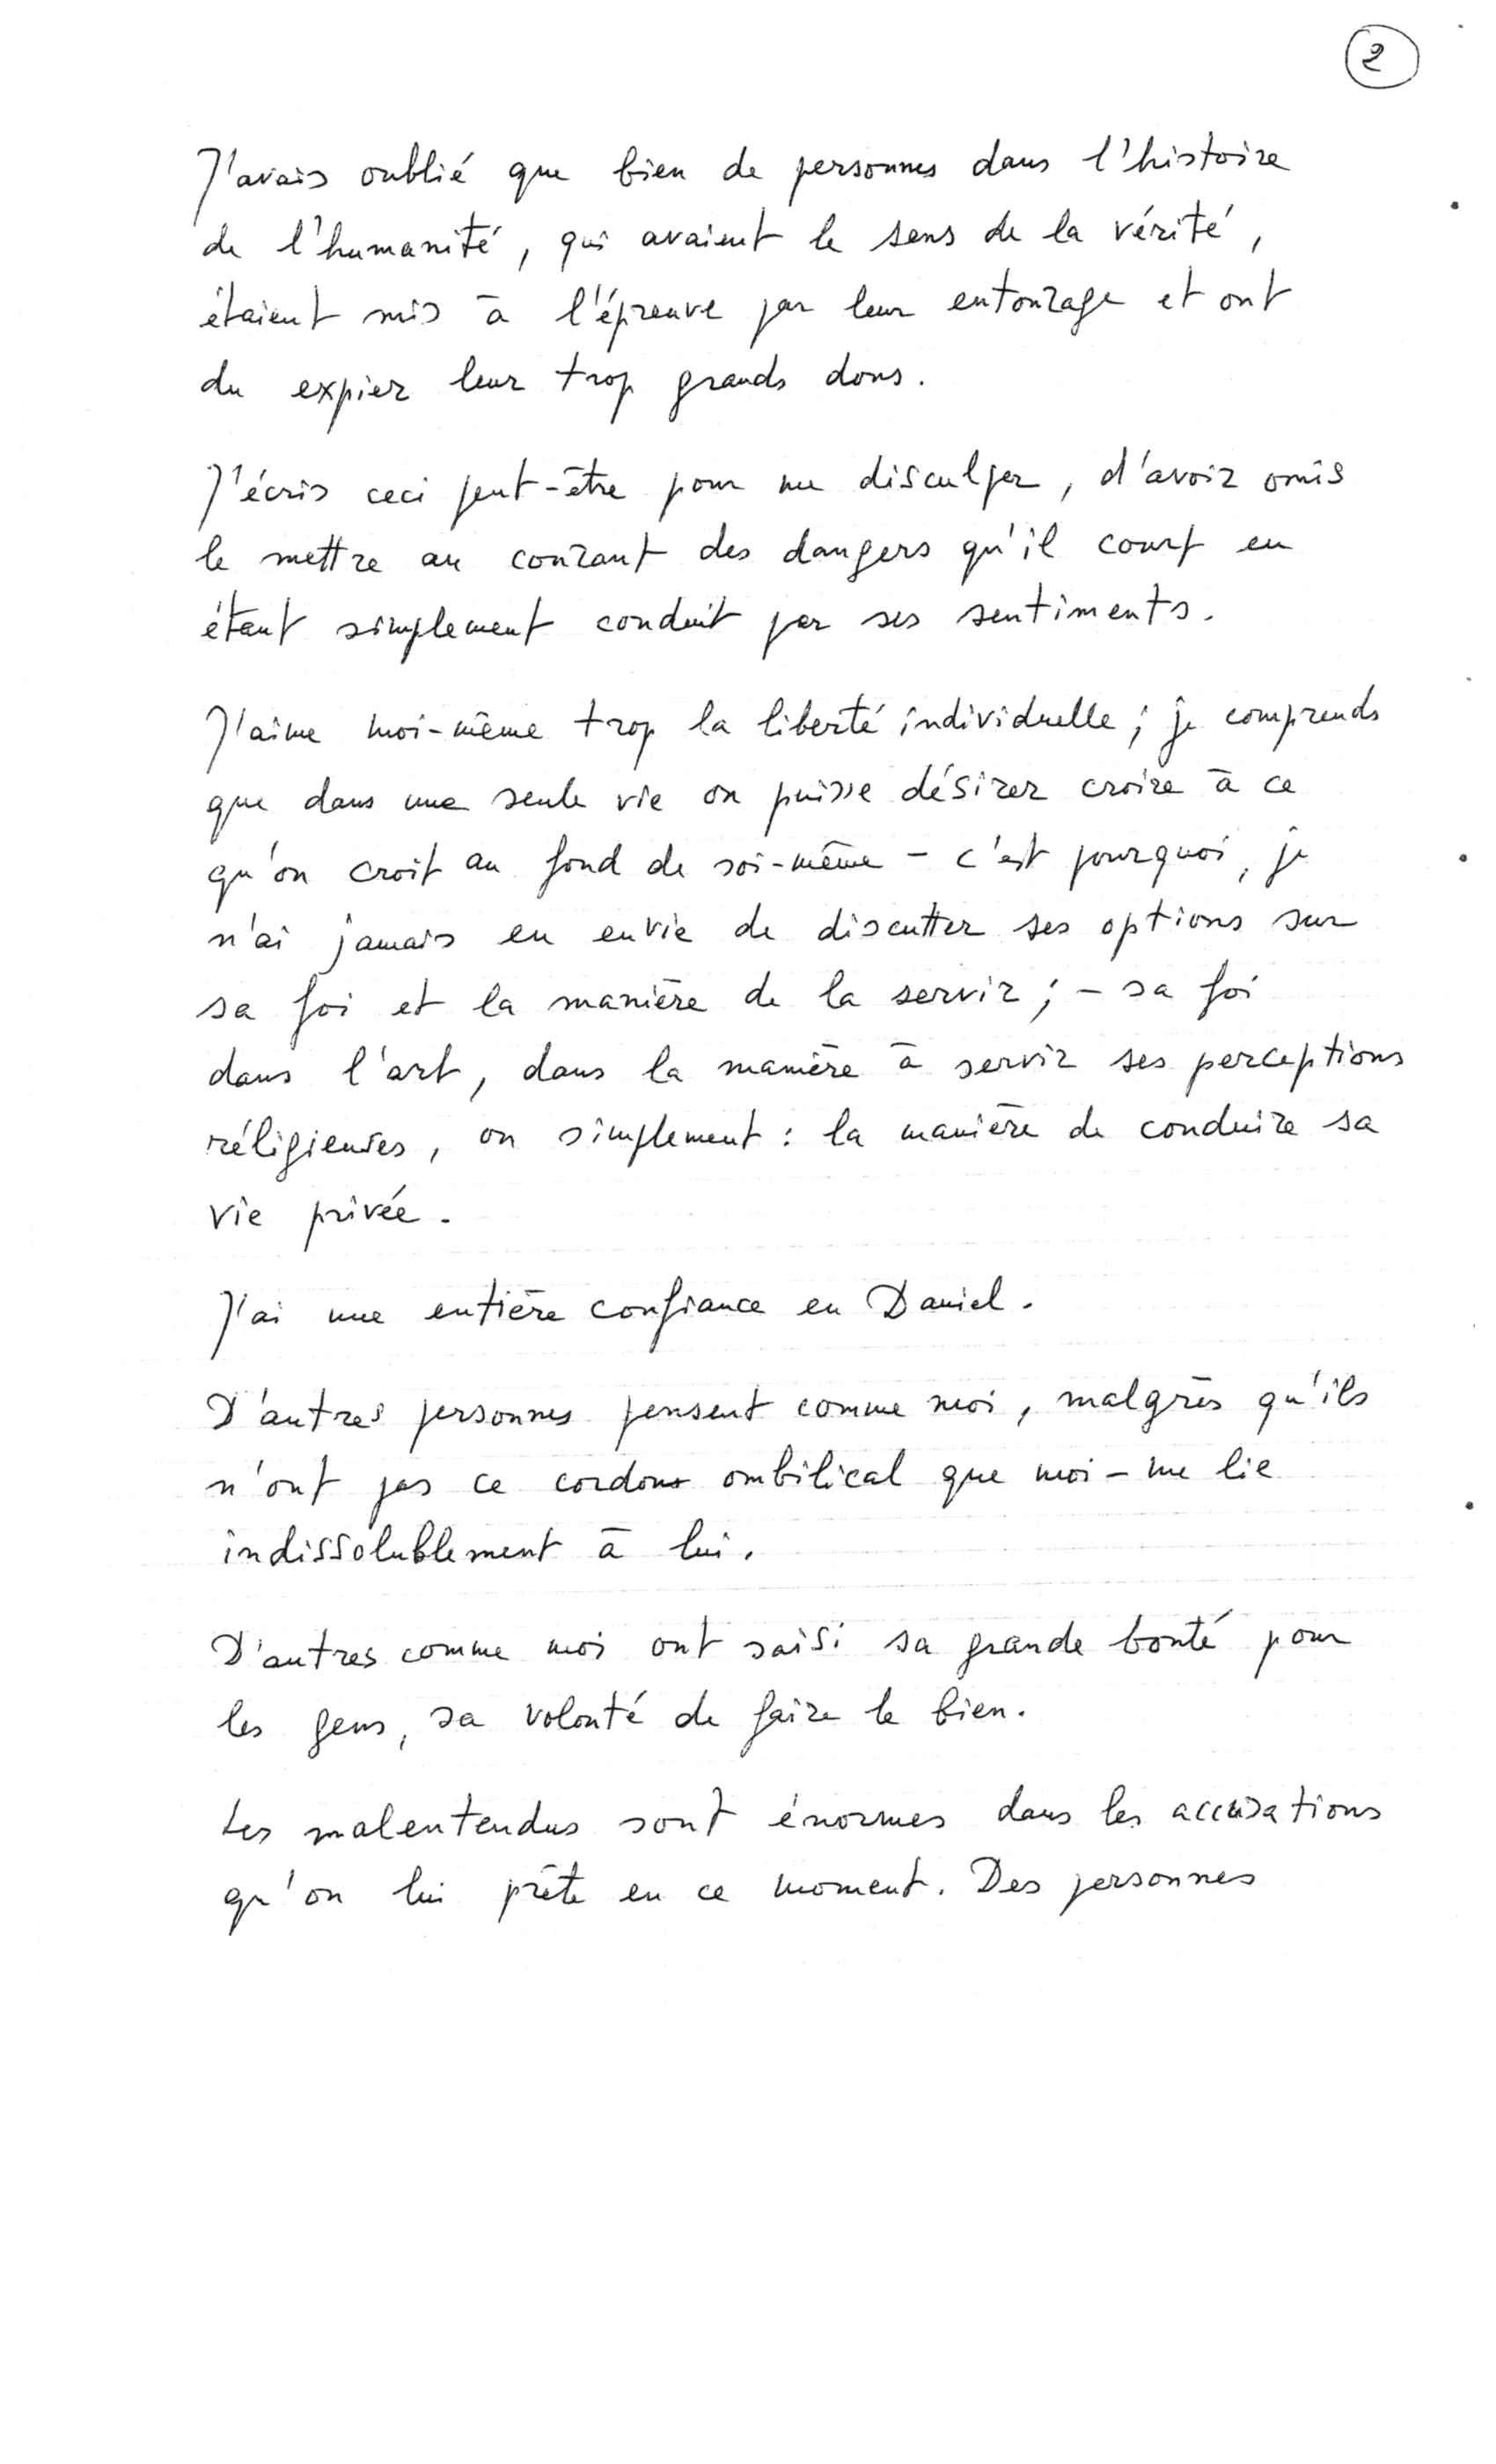 2
J'avais oublié que bien de personnes dans l'histoire
de l'humanité, qui avaient le sens de la vérité,
étaient mis à l'épreuve par leur entourage et ont
du expier leur trop grands dons.
J'écris ceci peut-être pour me disculper, d'avoir omis
le mettre au courant des dangers qu'il court en
étant simplement conduit par ses sentiments.
J'aime moi-même trop la liberté individuelle ; je comprends
que dans une seule vie on puisse désirer croire à ce
qu'on croit au fond de soi-même - c'est pourquoi, je
n'ai jamais eu envie de discutter ses options sur
sa foi et la manière de la servir ; - sa foi
dans l'art, dans la manière à servir ses perceptions
réligieuses, ou simplement : la manière de conduire sa
vie privée.
J'ai une entière confiance en Daniel.
D'autres personnes pensent comme moi, malgrès qu'ils
n'ont pas ce cordon ombilical que moi - me lie
indissolublement à lui.
D'autres comme moi ont saisi sa grande bonté pour
les gens, sa volonté de faire le bien.
Les malentendus sont énormes dans les accusations
qu'on lui prête en ce moment. Des personnes